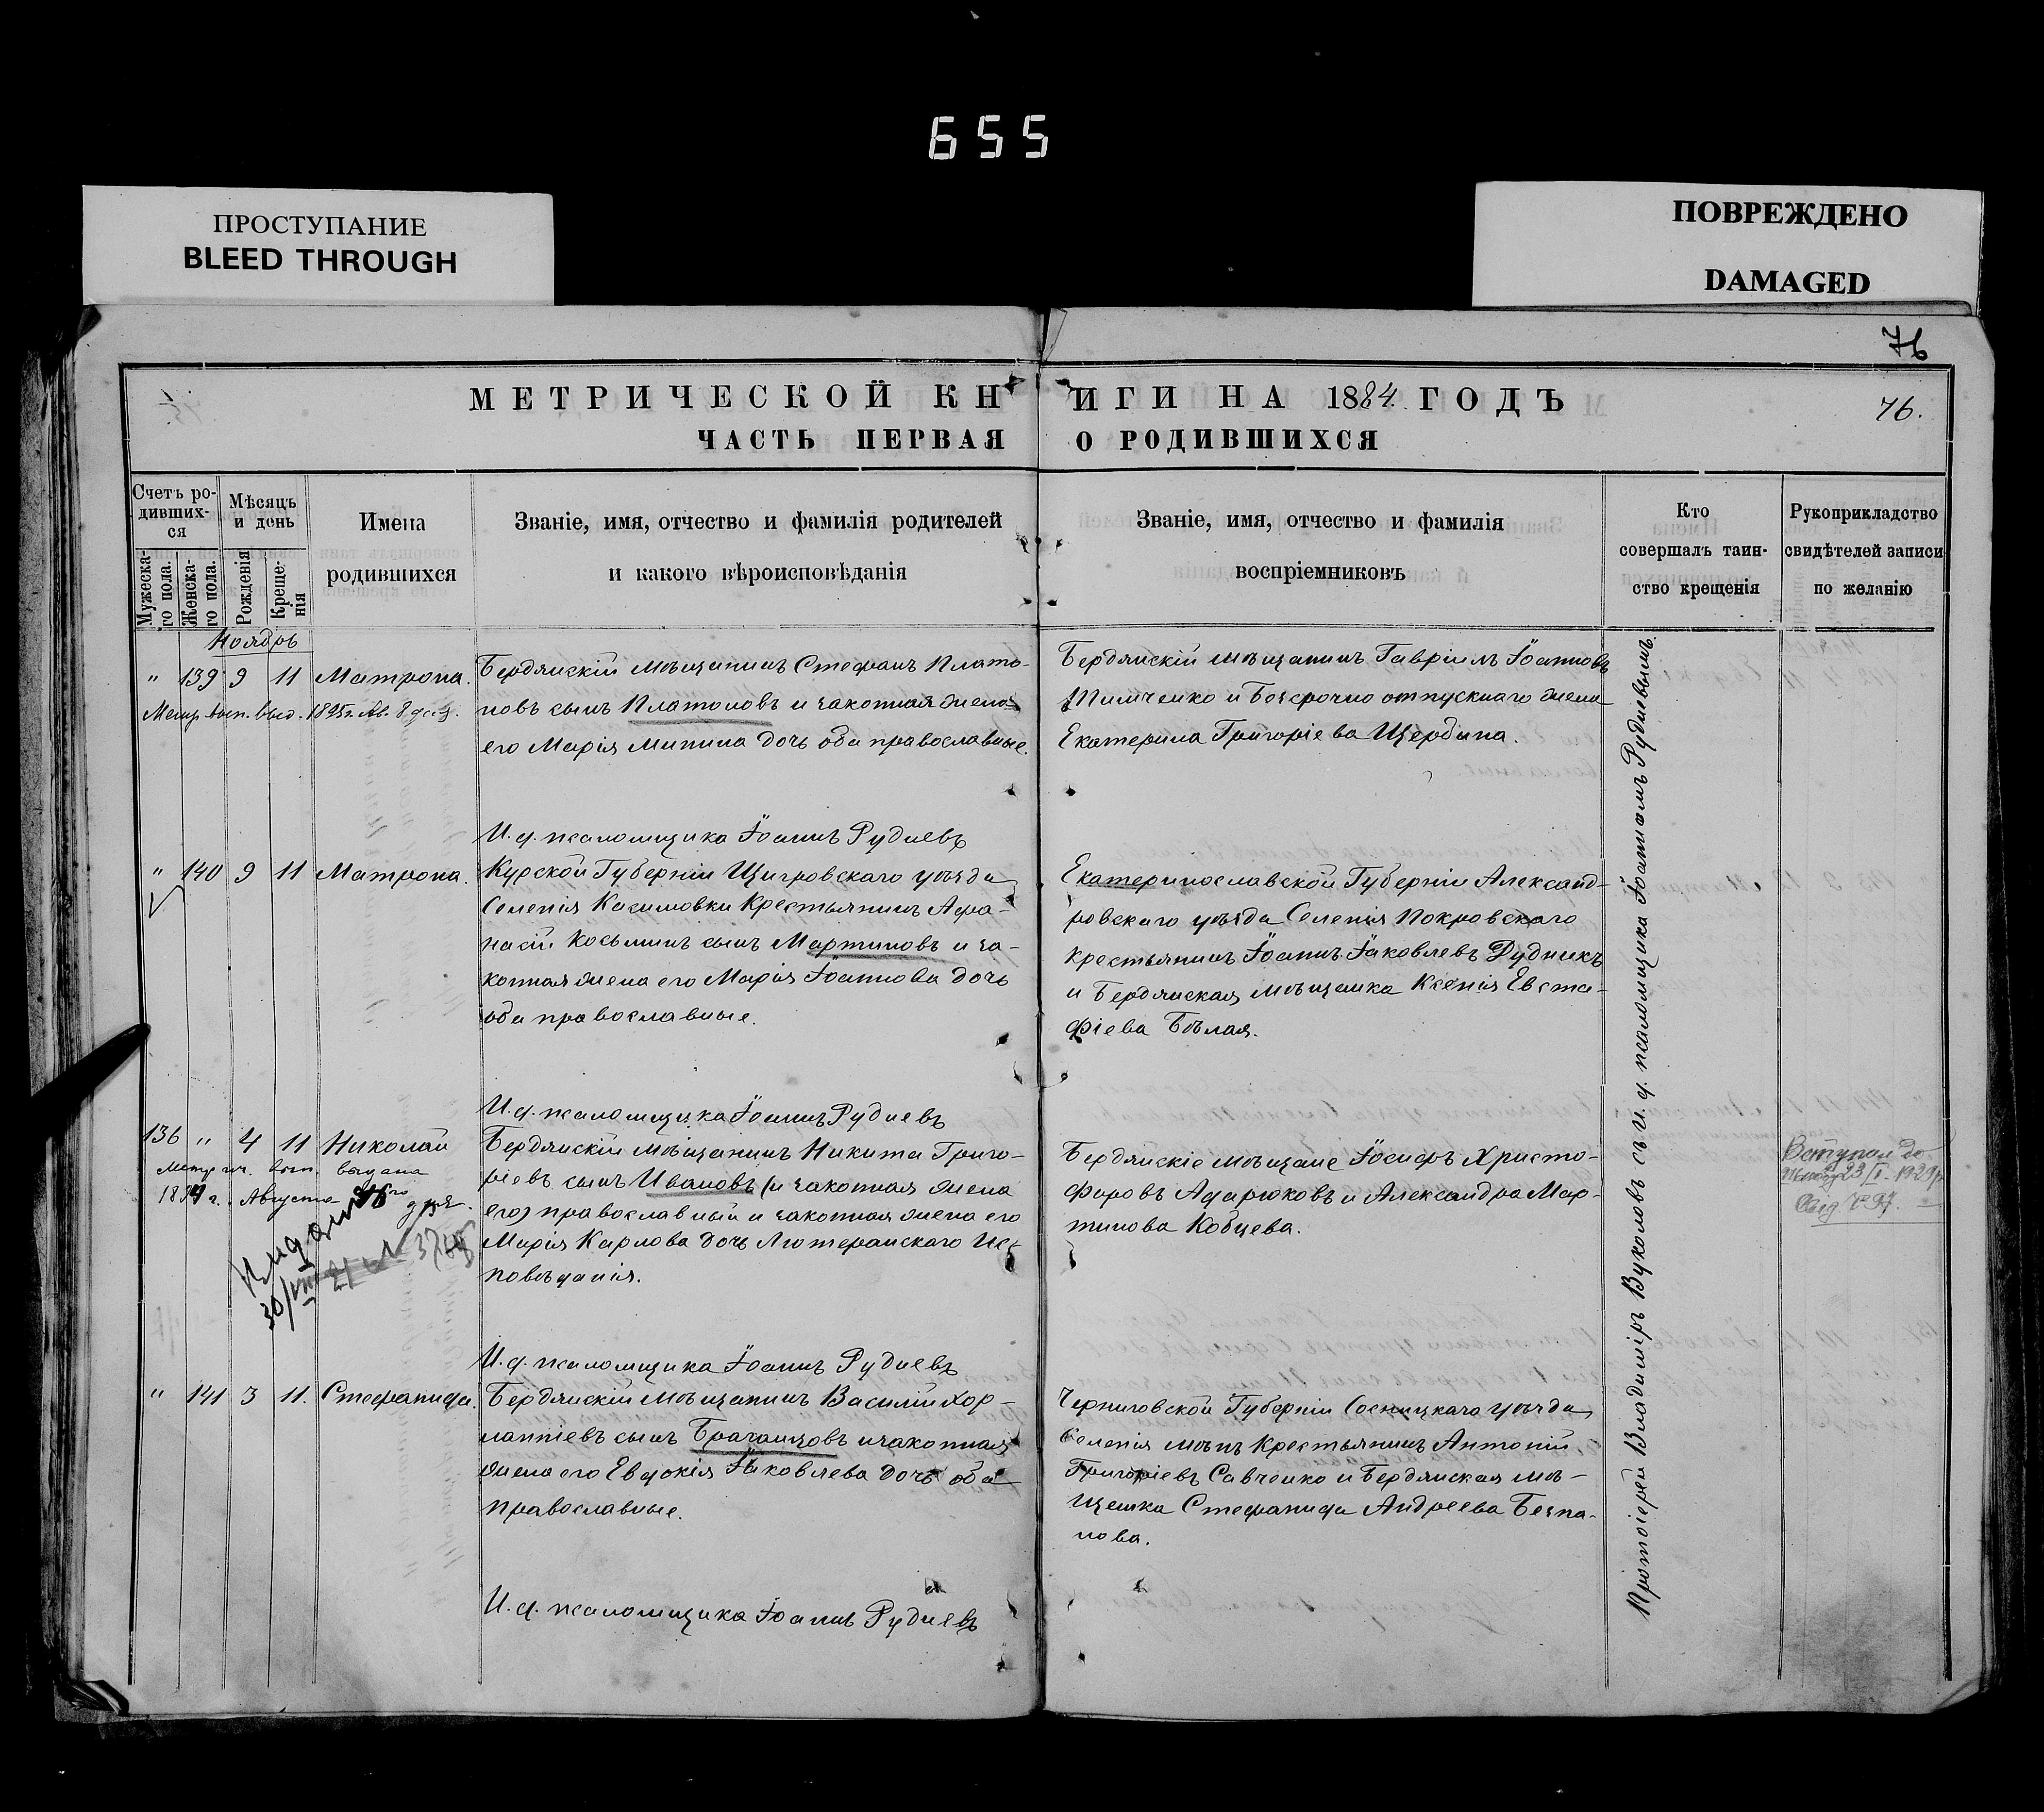 655
ПРОСТУПАНИЕ
BLEED THROUGH
ПОВРЕЖДЕНО
DAMAGED
76
МЕТРИЧЕСКОЙ КНИГИ НА 1884 ГОДЪ
76.
ЧАСТЬ ПЕРВАЯ О РОДИВШИХСЯ
Счетъ ро-
дивших-
ся
Мужеска-
го пола.
Женска-
го пола.
Мѣсяцъ
и день
Рожденія
Креще-
нія
Имена
родившихся
Званіе, имя, отчество и фамилія родителей
и какого вѣроисповѣданія
Званіе, имя, отчество и фамилія
воспріемниковъ
Кто
совершалъ таин-
ство крещенія
Рукоприкладство
свидѣтелей записи
по желанію
Ноябрь
" 139 9 11 Матрона.
Метр. вып. выд. 1895 г. Ав. 8 д.
Бердянскій мѣщанинъ Стефанъ Плато-
новъ сынъ Платоновъ и законная жена
его Марія Минина дочь оба православные.
Бердянскій мѣщанинъ Гавріилъ Іоанновъ
Тимченко и безсрочно отпускнаго жена
Екатерина Григоріева Щербина.
И. д. псаломщика Іоаннъ Рудневъ
" 140 9 11 Матрона.
Курской Губерніи Щигровскаго уѣзда
Селенія Касимовки Крестьянинъ Афа-
насій Косьминъ сынъ Мартиновъ и за-
конная жена его Марія Іоаннова дочь
оба православные.
Екатеринославской Губерніи Александ-
ровскаго уѣзда Селенія Покровскаго
крестьянинъ Іоаннъ Іаковлевъ Рудникъ
и Бердянская мѣщанка Ксенія Евста-
фіева Бѣлая.
И. д. псаломщика Іоаннъ Рудневъ
136 " 4 11 Николай
Метрич. вып. выдана
Августа
дня.
Бердянскій мѣщанинъ Никита Григо-
ріевъ сынъ Ивановъ (и законная жена
его) православный и законная жена его
Марія Карлова дочь Лютеранскаго Ис-
повѣданія.
Бердянскіе мѣщане Іосифъ Христо-
форовъ Адарюковъ и Александра Мар-
тинова Кобцева.
23/I 1929 р.
И. д. псаломщика Іоаннъ Рудневъ
" 141 3 11. Стефанида.
Бердянскій мѣщанинъ Василій Хар-
лампіевъ сынъ Браганцовъ и законная
жена его Евдокія Іаковлева дочь оба
православные.
Черниговской Губерніи Сосницкаго уѣзда
Селенія мѣнъ Крестьянинъ Антоній
Григоріевъ Савченко и Бердянская мѣ-
щанка Стефанида Андреева Безпа-
лова.
И. д. псаломщика Іоаннъ Рудневъ
Протоіерей Владиміръ Вуколовъ съ и. д. псаломщика Іоанномъ Рудневымъ.